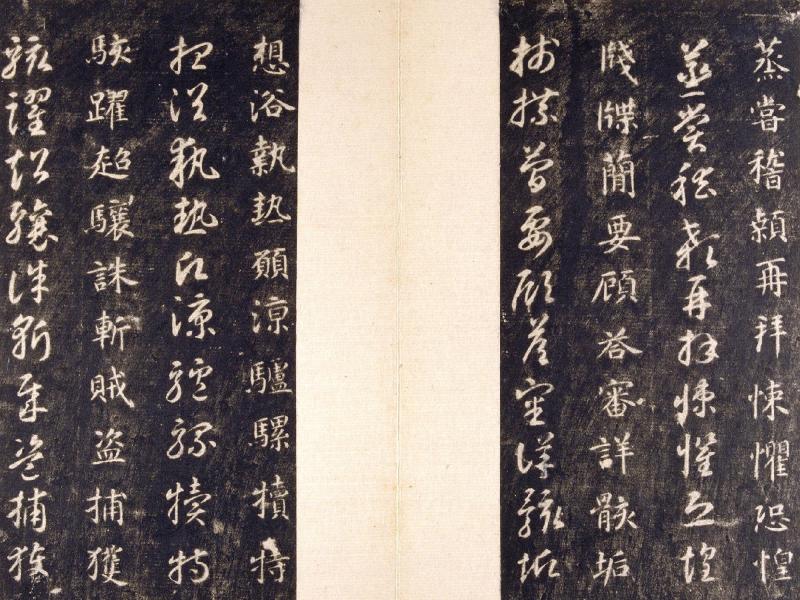 蒸嘗稽顙再拜悚懼恐惶
蒸嘗稽顙再拜悚懼恐惶
牋牒簡要顧荅審詳骸垢
牋牒簡要顧荅審詳骸垢
想浴執熱願涼驢騾犢特
想浴執熱願涼驢騾犢特
駭躍超驤誅斬賊盗捕獲
駭躍超驤誅斬賊盗捕獲